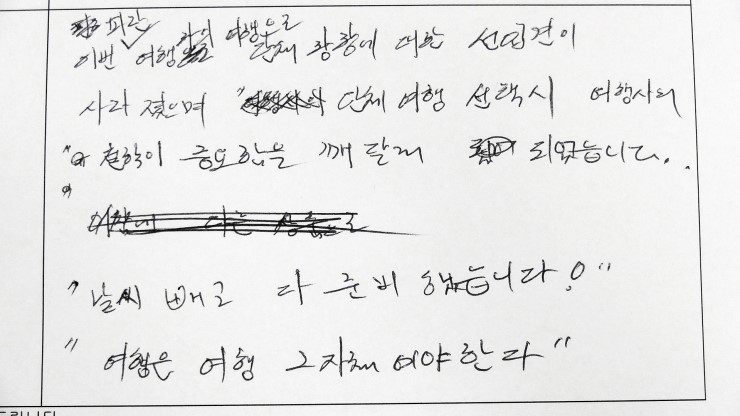 이번 여행 여행으로 단체 관광에 대한 선입견이
사라 졌으며 단체 여행 선택시 여행사의
철학이 중요함을 깨 달게 되었습니다.
"날씨 빼고 다 준비 했습니다!"
"여행은 여행 그자체 여야 한다"